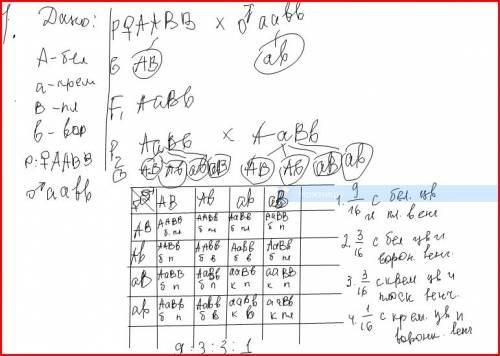 1. Дано:
А-бел
а-крем
В-пл
в-вор
P:♀ААВВ
♂аавв
P♀ААВВ х ♂аавв
G АВ ав
F₁ АаВв
P₂ АаВв х АаВв
G АВ Ав аВ ав АВ Ав аВ ав
АВ Ав ав аВ
АВ ААВВ б пл ААВв б пл АаВв б пл АаВВ б п
Ав ААВв б п ААвв б в Аавв б в АаВв б пл
аВ АаВВ б п АаВв б п ааВв к п ааВВ к п
ав АаВв б п Аавв б в аавв к в ааВв к пл
9:3:3:1
1. 9/16 с бел. цв и пл. венч
2. 3/16 с бел цв и ворон. венч.
3. 3/16 с крем цв и плоск венч.
4. 1/16 с крем. цв и воронк. венч